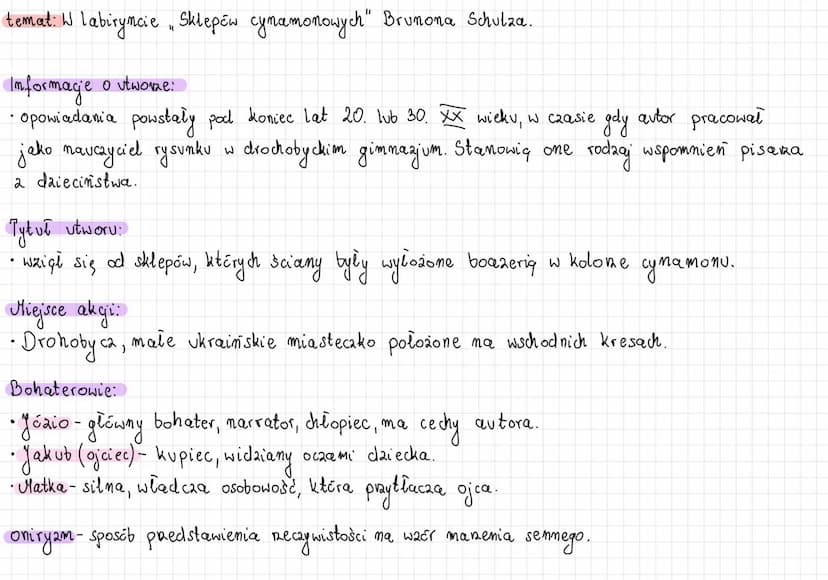 temat: W labiryncie „Sklepów cynamonowych" Brunona Schulza.
Informacje o utworze:
· opowiadania powstały pod koniec lat 20. lub 30. XX wieku, w czasie gdy autor pracował
jako nauczyciel rysunku w drohobyckim gimnazjum. Stanowią one rodzaj wspomnień pisarza
z dzieciństwa.
Tytuł utworu:
· wziął się od sklepów, których ściany były wyłożone boazerią w kolorze cynamonu.
Miejsce akcji:
· Drohobycz, małe ukraińskie miasteczko położone na wschodnich kresach.
Bohaterowie:
· Józio - główny bohater, narrator, chłopiec, ma cechy autora.
· Jakub (ojciec) - kupiec, widziany oczami dziecka.
· Matka - silna, władcza osobowość, która przytłacza ojca.
oniryzm - sposób przedstawienia rzeczywistości na wzór marzenia sennego.